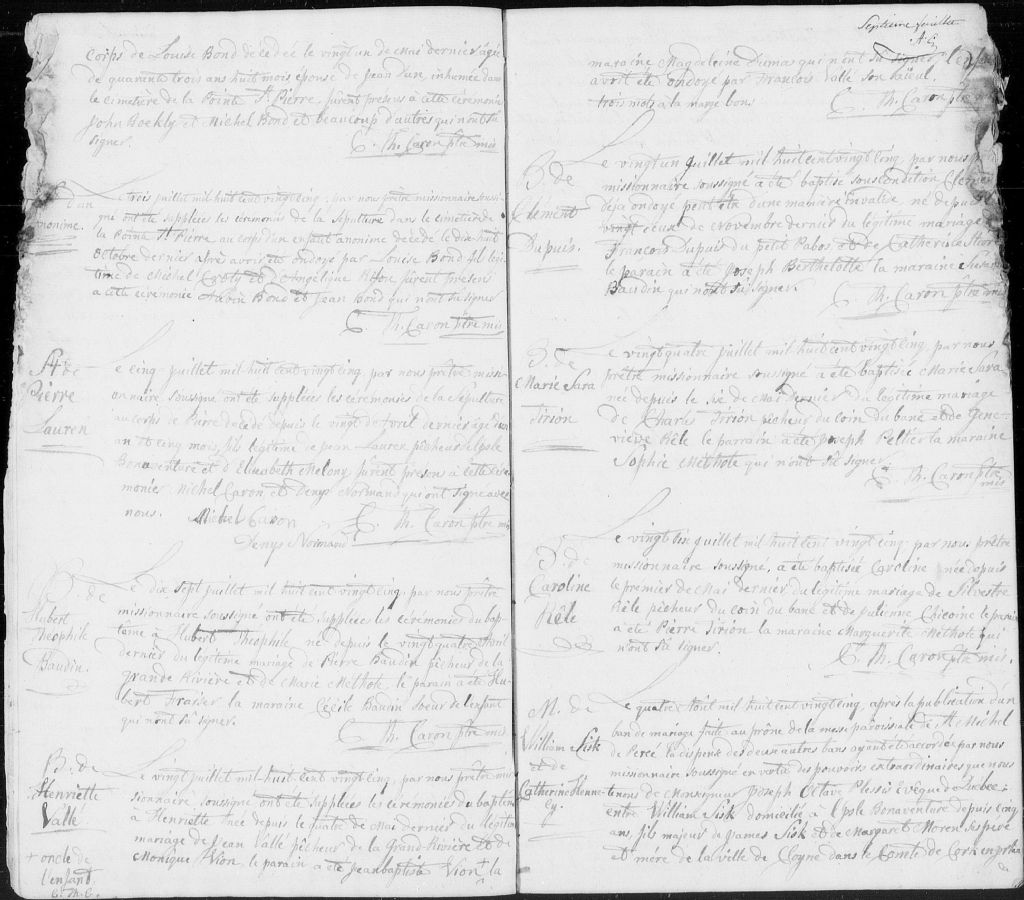 corps de Louise Bond décédée le vingt un de Mai dernier âgée
de quarente trois ans huit mois épouse de Jean Dun, inhumée dans
le cimetière de la Pointe St. Pierre, furent présens à cette cérémonie
John Boekly et Michel Bond et beaucoup d'autres qui n'ont su
signer.
C. Th. Caron ptre mis
d'un
anonime.
Le trois juillet mil huit cent vingt cinq, par nous prêtre missionnaire soussi-
gné ont été supplées les cérémonies de la Sépulture dans le cimetière de
la Pointe St. Pierre, au corps d'un enfant anonime décédé le dix huit
Octobre dernier après avoir été ondoyé par Louise Bond fils légi-
time de Michel et d'Angélique furent présens
à cette cérémonie Bond et Jean Bond qui n'ont su signer
C. Th. Caron ptre mis
S. de
Pierre
Lauren
Le cinq juillet mil huit cent vingt cinq, par nous prêtre missi-
onnaire soussigné ont été supplées les cérémonies de la Sépulture
au corps de Pierre décédé depuis le vingt d'Avril dernier âgé d'un
an et cinq mois, fils légitime de Jean Lauren pêcheur de l'isle
Bonaventure et d'Elisabeth Melony, furent présens à cette céré-
monie Michel Caron et Denys Normand qui ont signé avec
nous.
Michel Caron C. Th. Caron ptre mis
Denys Normand
B. de
Hubert
Théophile
Baudin.
Le dix sept juillet mil huit cent vingt cinq, par nous prêtre
missionnaire soussigné ont été supplées les cérémonies du bap-
tême à Hubert Théophile né depuis le vingt quatre Avril
dernier du légitime mariage de Pierre Baudin pêcheur de la
grande Rivière et de Marie Methote, le parain a été Hu-
bert Fraser la maraine Cécile Baudin soeur de l'enfant
qui n'ont su signer.
C. Th. Caron ptre mis
B. de
Henriette
Vallé
+ oncle de
l'enfant.
C. Th. C.
Le vingt juillet mil huit cent vingt cinq, par nous prêtre mis-
sionnaire, soussigné ont été supplées les cérémonies du baptême
à Henriette née depuis le quatre de Mai dernier du légitime
mariage de Jean Vallé pêcheur de la Grand Rivière et de
Monique Vion, le parain a été Jean baptiste Vion + la
Septième feuillet
maraine Magdeleine Dumas qui n'ont su signer, l'enfant
avoit été ondoyé par François Vallé son
trois mots a la marge bons.
C. Th. Caron ptre
B. de
Clément
Dupuis.
Le vingt un juillet mil huit cent vingt cinq, par nous prêtre
missionnaire soussigné a été baptisé sous condition Clément
déja ondoyé peut être d'une manière invalide, né depuis le
vingt deux de Novembre dernier du légitime mariage de
François Dupuis du petit Pabos et de Catherine
le parain a été Joseph Berthelotte la maraine
Baudin qui n'ont su signer.
C. Th. Caron ptre mis
B. de
Marie Sara
Sirion
Le vingt quatre juillet mil huit cent vingt cinq, par nous
prêtre missionnaire soussigné a été baptisée Marie Sara
née depuis le six de Mai dernier du légitime mariage
de Charles Sirion pêcheur du coin du banc et de Gene-
viève Bêle le parrain a été Joseph Peltier la maraine
Sophie Methote qui n'ont su signer
C. Th. Caron ptre
mis
B. de
Caroline
Bêle
Le vingt cinq juillet mil huit cent vingt cinq par nous prêtre
missionnaire soussigné, a été baptisée Caroline née depuis
le premier de Mai dernier du légitime mariage de Silvestre
Bêle pêcheur du coin du banc et de Julienne Chicoine le parain
a été Pierre Sirion la maraine Marguerite Methote qui
n'ont su signer.
C. Th. Caron ptre mis.
M. de
William Sisk
et de
Catherine Henne-
ey.
Le quatre Août mil huit cent vingt cinq, après la publication d'un
ban de mariage faite au prône de la messe paroissiale de St Michel
de Percé la dispense des deux autres bans ayant été accordée par nous
missionnaire soussigné en vertu des pouvoirs extraordinaires que nous
tenons de Monseigneur Joseph Octave Plessis évêque de Québec
entre William Sisk domicilié à l'isle Bonaventure depuis cinq
ans, fils majeur de James Sisk et de Margaret Moren ses père
et mère de la ville de Cloyne dans le Comté de Cork en Irlan